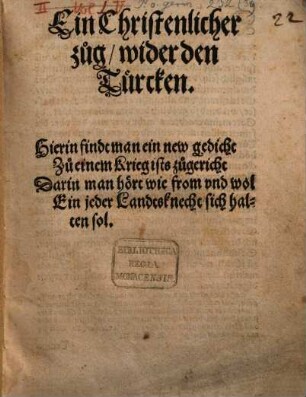 22
Ein Christenlicher
züg / wider den
Türcken.
Hierin finde man ein new gedicht
Zů einem Krieg ists zůgericht
Darin man hört wie from vnd wol
Ein jeder Landtsknecht sich hal-
ten sol.
BIBLIOTHECA
REGIA
MONACENSIS